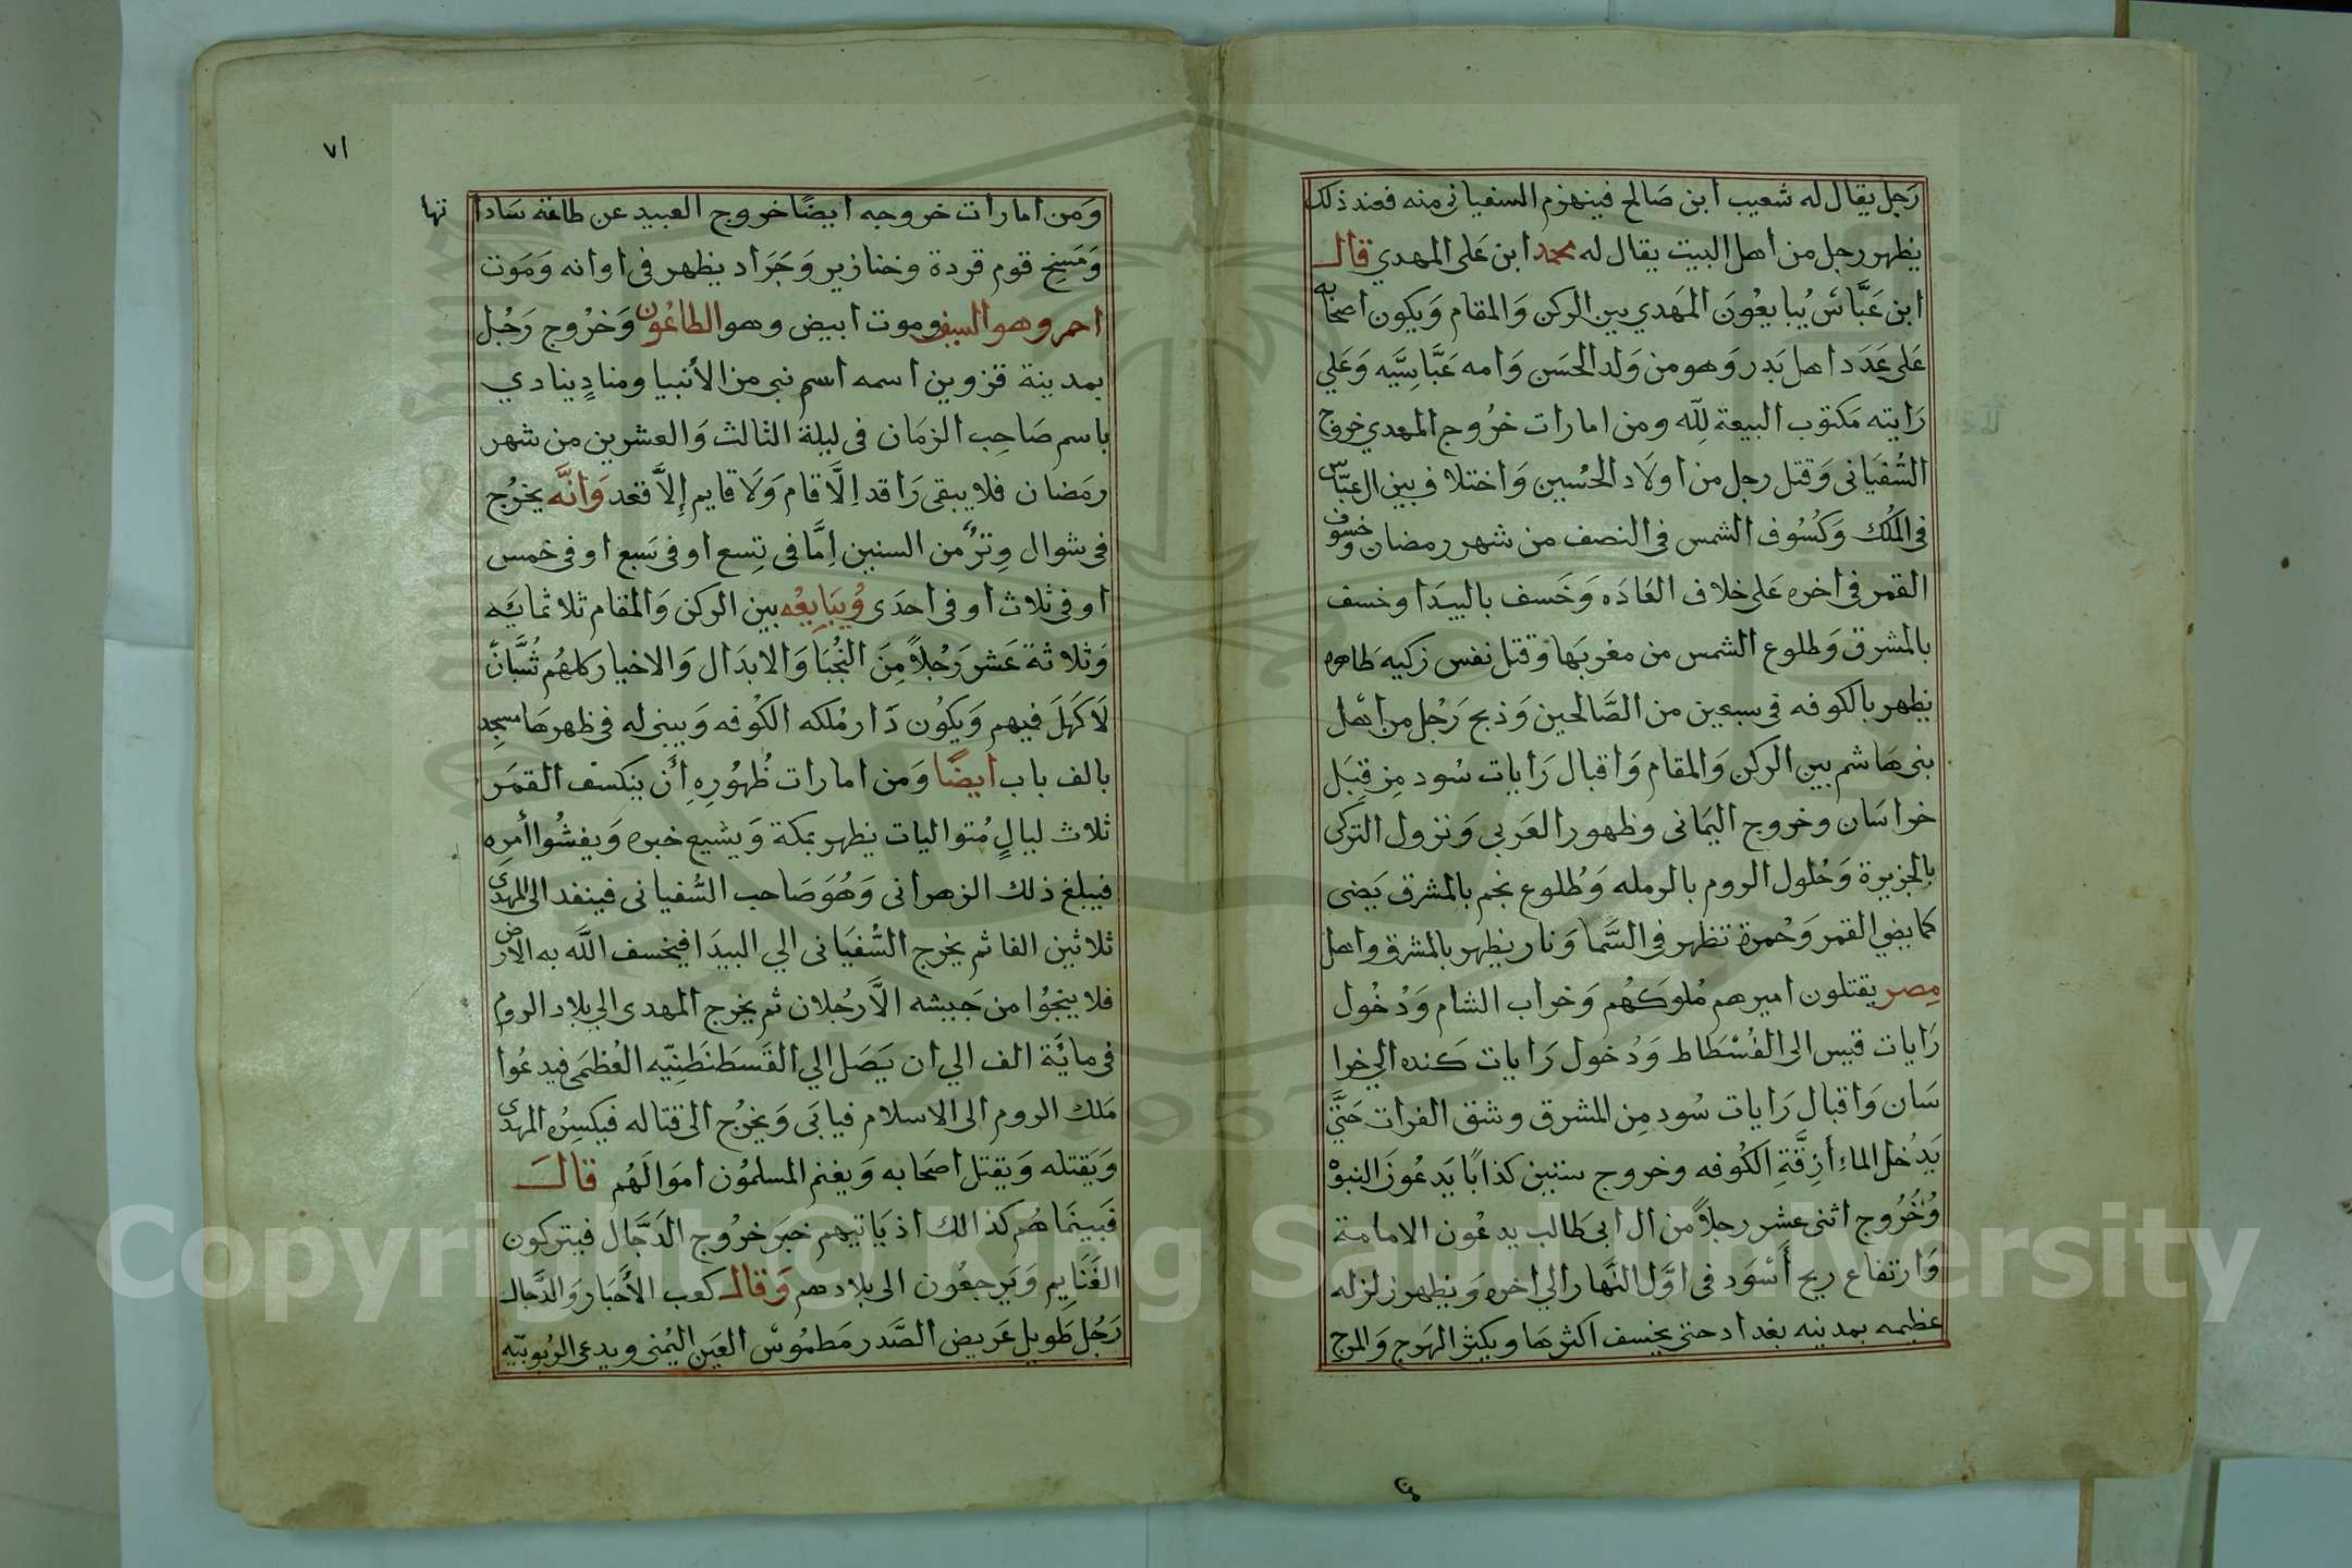 رَجل يقال له شعيب ابن صَالح فينهزم السفيانى منه فعند ذلك
يظهر رجل من اهل البيت يقال له محمد ابن عَلى المهدي قال
ابن عَبَّاسْ يُبايعُونَ المَهدي بين الركن وَالمقام وَيكون اصحابه
عَلى عَدَد اهل بَدر وَهو من وَلد الحَسَن وَامه عَبَّاسِيَّه وَعَلي
رَايته مَكتوب البيعة لِلّه ومن امارات خرُوج المهدي خروج
السُّفيَانى وَقتل رجل من اولَاد الحُسين وَاختلاف بين ال عبّاس
فى المُلك وَكُسُوف الشمس فى النصف من شهر رمضان وخسوف
القمر فى اخره عَلى خلاف العَادَه وَخَسف بالبيدَا وخسف
بالمشرق وَطلوع الشمس من مغربهَا وَقتل نفس زكيه طاهره
يظهر بالكوفه فى سبعين من الصَّالحين وَذبح رَجُل من اهل
بنى هَاشم بين الركن وَالمقام وَاقبال رَايات سُود مِن قِبَل
خراسَان وخروج اليمَانى وظهور العَربي وَنزول التركى
بالجزيرة وَحُلول الروم بالرمله وَطُلوع نجم بالمشرق يَضى
كما يضي القمر وَحُمرة تظهر فى السَّما وَنار يظهر بالمشرق واهل
مِصر يقتلون اميرهم مُلوَكَهُم وَخراب الشام وَدُخُول
رَايات قيس الى الفُسْطَاط وَدُخول رَايات كنده الي خرا
سَان وَاقبال رَايات سُود مِن المشرق وشق الفرات حَتَّى
يَدخُل الماء أزِقَّةِ الكُوفه وخروج ستين كذابًا يَدعُونَ النبوْ
وُخُرُوج اثنى عشر رجلاً من ال ابى طَالب يدعُون الامامة
وَارتفاع ريح أَسْوَد فى اوَّل النَّهار الي اخره وَيظهر زلزله
عظيمه بمدنيه بغداد حتى يخسف اكثرهَا ويكثر الهَرج وَالمرج
تا
٧١
وَمن امارات خروجه ايضًا خروج العبيد عن طاعة سَادا
تها
وَمَسِخ قوم قردة وخنازير وَجَرَاد يظهر فى اوانه وَمَوت
احمر وهو السيف وموت ابيض وهو الطاعُون وَخرُوج رَجُل
بمدينة قزوين اسمه اسم نبي من الأنبيا ومنادٍ ينادي
باسم صَاحِب الزمَان فى ليلة الثالث وَالعشرين من شهر
رمَضان فلا يبقى رَاقد اِلَّا قام وَلَا قايم إلَّا قعد وَانَّه يخرُج
فى شوال وِترٌ من السنين اِمَّا فى تِسع او فى سَبع او فى خمس
او فى ثلاث او فى احدَى وُيبَايعُه بين الركن وَالمقام ثلاثمايَه
وَثلاثة عَشر رَجُلاً مِنَ النُجُبَا وَالابدَال وَالاخيار كلهُم شُبَّان
لَا كَهلَ فيهم وَيكوُن دَار مُلكه الكُوفه وَيبنى له فى ظهرهَا مسجد
بالف باب ايضًا وَمن امارات ظُهُورِهِ أن ينكسف القمَر
ثلاث ليالٍ مُتواليات يظهر بمكة وَيشيع خبره وَيفشُوا أمره
فيبلغ ذلك الزهرانى وَهُوَ صَاحب السُّفيانى فينفد الى المهدى
ثلاثين الفا ثم يخرج السُّفيَانى الي البيدَا فيخسف اللَّه به الارض
فلا ينجُوا من جَيشه الاَّ رجُلان ثم يخرج المهدى الي بلاد الروم
فى مايَة الف الي ان يَصَل الي القَسطَنطَنِيّه العُظمَى فيدعُوا
مَلك الروم الى الاسلام فيابَى وَيخرُج الى قتاله فيكسِرُه المهدى
وَيَقتله وَيقتل اصحَابه وَيغنم المسلموُن امَوالَهُم قالَ
فَبينمَا هُم كذالك اذ يَاتيهم خبَر خرُوج الدَجَّال فيتركون
الغَنَايم وَيَرجعُون الى بلادهم وَقال كعب الأَحَبار وَالدَّجال
رَجُل طَويل عَريض الصَّدر مَطمُوسْ العَين اليُمنى ويدعى الرُبوبيّه
Copyright © King Saud University
1957